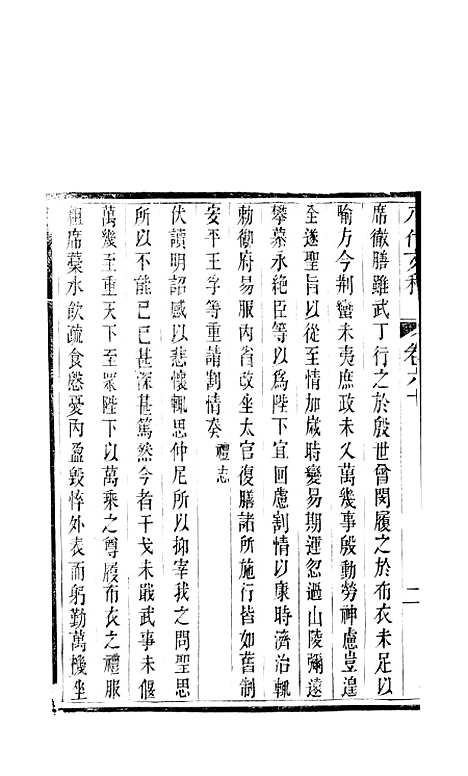 八代文粹 卷六十 二
席徹膳雖武丁行之於殷世曾閔履之於布衣未足以
喻方今荆蠻未夷庶政未乂萬幾事殷動勞神慮豈遑
全遂聖旨以從至情加歲時變易期運忽過山陵彌遠
攀慕永絶臣等以爲陛下宜回慮割情以康時濟治輒
勅御府易服内省改坐太官復膳諸所施行皆如舊制
安平王孚等重請割情奏 禮志
伏讀明詔感以悲懷輒思仲尼所以抑宰我之問聖思
所以不能已已甚深甚篤然今者干戈未戢武事未偃
萬幾至重天下至眾陛下以萬乘之尊履布衣之禮服
粗席藁水飲疏食慇憂内盈毀悴外表而躬勤萬機坐